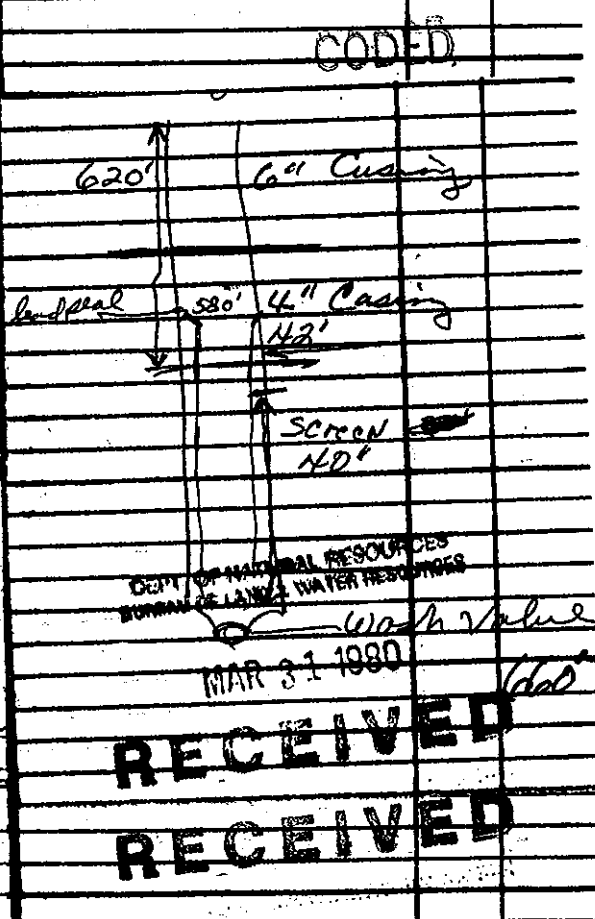 CODED
620' 6" Casing
lead seal 580' 4" Casing
42'
SCREEN
40'
DEPT OF NATURAL RESOURCES
BUREAU OF LAND & WATER RESOURCES
Wash Valve
MAR 31 1980
660'
RECEIVED
RECEIVED